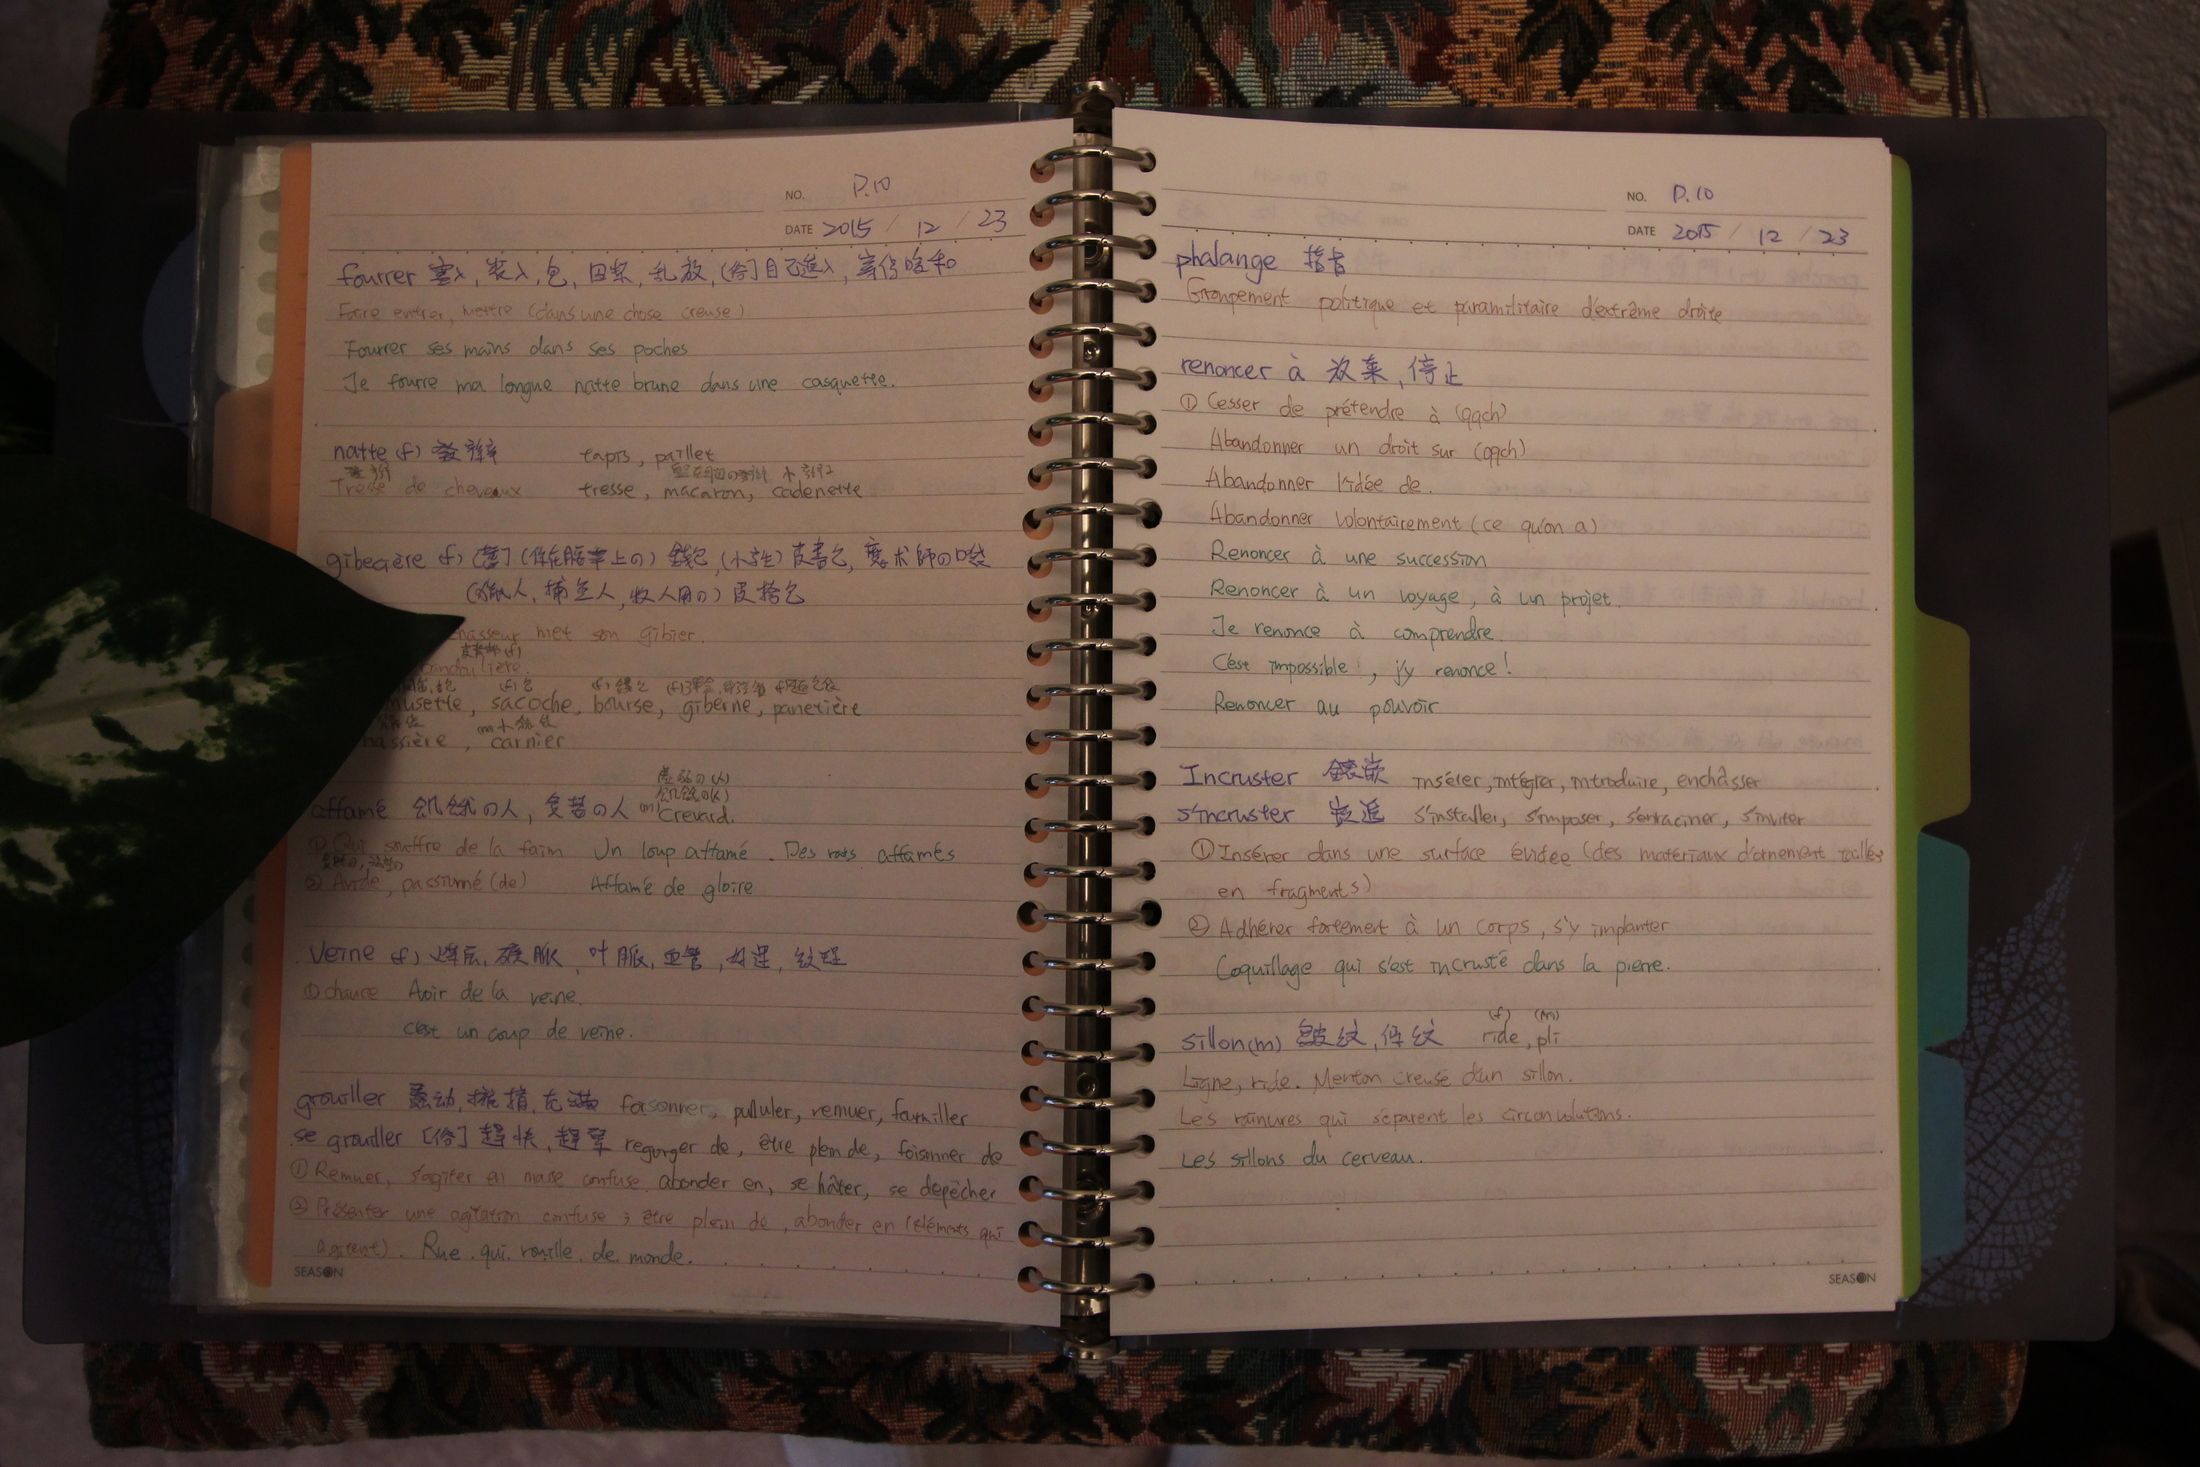 NO. P.10
DATE 2015 / 12 / 23
fourrer 塞入, 裝入, 包, 困禁, 乱放, [俗]自己進入,
Faire entrer, mettre (dans une chose creuse)
Fourrer ses mains dans ses poches
Je fourre ma longue natte brune dans une casquette.
natte (f) 髮辮 tapis, paillet
Tresse de cheveux tresse, macaron, cadenette
gibecière (f) [舊] ( 上の) 錢包, (小学生) 皮書包, 魔术師の口袋
(猟人, 捕魚人, 牧人用の) 皮挎包
chasseur met son gibier.
(f)
bandoulière.
(f)包 (f)錢包 (f)
musette, sacoche, bourse, giberne, panetière
(m)
assière, carnier
の(人)
飢餓の(人)
affamé 飢餓の人, 貪婪の人 (m) crevard.
① Qui souffre de la faim Un loup affamé. Des rats affamés
② Avide, passionné (de) Affamé de gloire
veine (f) 礦脈, 叶脈, 血管, 好運, 紋理
① chance Avoir de la veine.
C'est un coup de veine.
grouiller 蠢动, 擁擠, 充滿 foisonner, pulluler, remuer, fourmiller
se grouiller [俗] 趕快, 趕緊 regorger de, être plein de, foisonner de
① Remuer, s'agiter en masse confuse. abonder en, se hâter, se dépêcher
② Présenter une agitation confuse; être plein de, abonder en (éléments qui
agitent). Rue qui rouille de monde.
SEASON
NO. P.10
DATE 2015 / 12 / 23
phalange 指骨
Groupement politique et paramilitaire d'extrême droite
renoncer à 放棄, 停止
① Cesser de prétendre à (qqch)
Abandonner un droit sur (qqch)
Abandonner l'idée de.
Abandonner volontairement (ce qu'on a)
Renoncer à une succession
Renoncer à un voyage, à un projet.
Je renonce à comprendre.
C'est impossible, j'y renonce!
Renoncer au pouvoir
Incruster 鑲嵌 insérer, intégrer, introduire, enchâsser
s'incruster s'installer, s'imposer, s'enraciner, s'inviter
① Insérer dans une surface évidée (des matériaux d'ornement taillés
en fragments)
② Adhérer fortement à un corps, s'y implanter
Coquillage qui s'est incrusté dans la pierre.
(f) (m)
sillon (m) 皺紋, 條紋 ride, pli
Ligne, ride. Menton creusé d'un sillon.
Les rainures qui séparent les circonvolutions.
Les sillons du cerveau.
SEASON